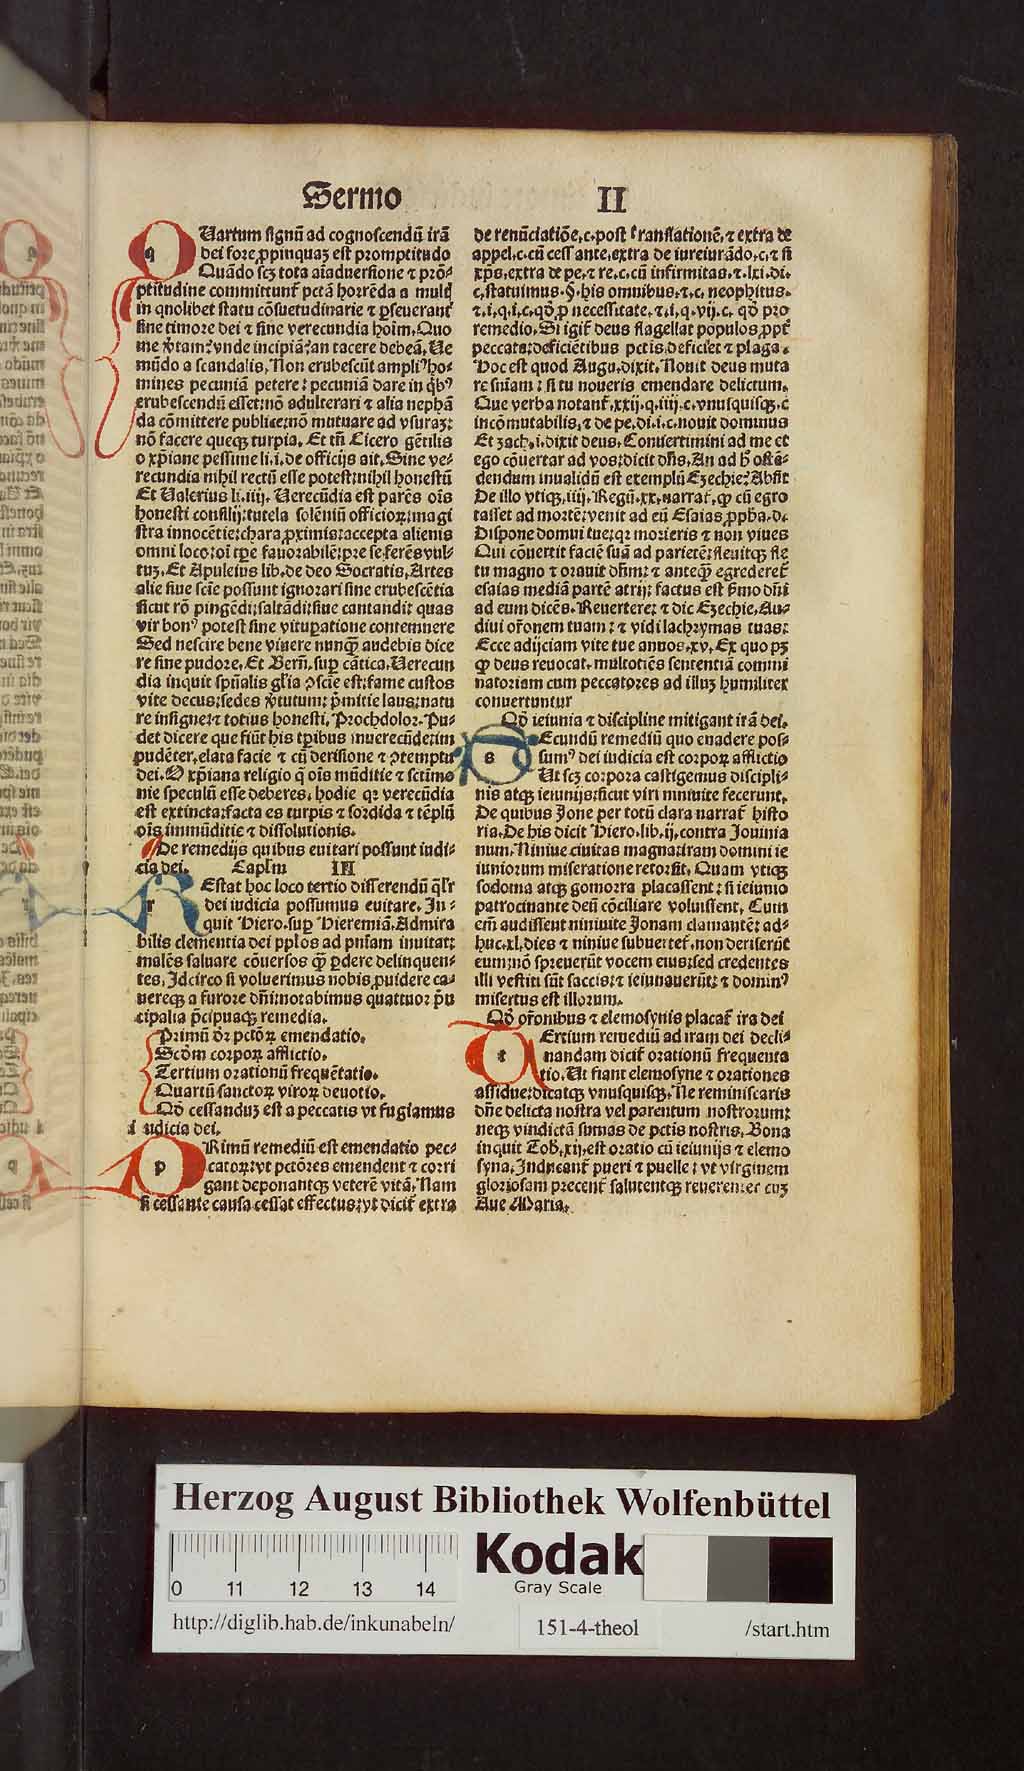 Sermo II
QUartum signū ad cognoscendū irā
dei fore ꝓpinquaꝫ est promptitudo
Quādo scꝫ tota aīaduersione ⁊ prō-
ptitudine committunt᷑ pctā horrēda a mult᷑
in qnolibet statu cōsuetudinarie ⁊ ꝑseuerant᷑
sine timore dei ⁊ sine verecundia hoīm. Quo
me v̓tam: vnde incipiā: an tacere debeā. Ue
mūdo a scandalis. Non erubescūt ampliꝰ ho-
mines pecuniā petere: pecuniā dare in qͥbꝰ
erubescendū esset: nō adulterari ⁊ alia nephā
da cōmittere publice: nō mutuare ad vsuraꝫ:
nō facere queqꝫ turpia. Et tn̄ Cicero gētilis
o xp̄iane pessime li. i. de officijs ait. Sine ve-
recundia nihil rectū esse potest: nihil honestū
Et Ualerius li. iiij. Uerecūdia est parēs oīs
honesti consilij: tutela solēniū officioꝝ: magi
stra innocētie: chara ꝓximis: accepta alienis
omni loco: oī tꝑe fauorabilē: pre se ferēs vul-
tuꝫ. Et Apuleius lib. de deo Socratis. Artes
alie siue sciē possunt ignorari sine erubescētia
sicut rō pingēdi: saltādi: siue cantandi: quas
vir bonꝰ potest sine vituꝑatione contemnere
Sed nescire bene viuere nunqͣꝫ audebis dice
re sine pudore. Et Bern̄. suꝑ cātica. Uerecun
dia inquit spūalis gl̓ia ꝯsciē est: fame custos
vite decus: sedes v̓tutum: pͥmitie laus: natu
re insigne: ⁊ totius honesti. Prochdolor. Pu-
det dicere que fiūt his tꝑibus inuerecūde: im
pudēter, elata facie ⁊ cū derisione ⁊ ꝯtemptu
dei. O xp̄iana religio q̄ oīs mūditie ⁊ sctīmo
nie speculū esse deberes, hodie qꝛ verecūdia
est extincta: facta es turpis ⁊ sordida ⁊ tēplū
oīs immūditie ⁊ dissolutionis.
De remedijs quibus euitari possunt iudi-
cia dei. Caplm̄ III
REstat hoc loco tertio disserendū ql̓r
dei iudicia possumus euitare. In-
quit Hiero. suꝑ Hieremiā. Admira
bilis clementia dei pplos ad pnīam inuitat:
malēs saluare cōuersos qͣꝫ ꝑdere delinquen-
tes. Idcirco si voluerimus nobis ꝓuidere ca-
uereqꝫ a furore dn̄i: notabimus quattuor pͥn
cipalia p̄cipuaqꝫ remedia.
Primū dr̄ pctōꝝ emendatio.
Scd̄m corporꝝ afflictio.
Tertium orationū frequētatio.
Quartū sanctoꝝ viroꝝ deuotio.
Qd̄ cessanduꝫ est a peccatis vt fugiamus
iudicia dei.
PRimū remediū est emendatio pec-
catoꝝ: vt pctōres emendent ⁊ corri
gant deponantqꝫ veterē vitā. Nam
si cessante causa cessat effectus: vt dicit᷑ extra
de renūciatiōe. c. post translationē. ⁊ extra de
appel. c. cū cessante. extra de iureiurādo. c. ⁊ si
xp̄s. extra de pe. ⁊ re. c. cū infirmitas. ⁊. lxi. di.
c. statuimus. §. his omnibus. ⁊. c. neophitus.
⁊. i. q. i. c. qd̄ ꝓ necessitate. ⁊. i. q. vij. c. qd̄ pro
remedio. Si igit᷑ deus flagellat populos ꝓpt᷑
peccata: deficiētibus pctis deficiet ⁊ plaga.
Hoc est quod Augu. dixit. Nouit deus muta
re sniam: si tu noueris emendare delictum.
Que verba notant᷑. xxij. q. iiij. c. vnusquisqꝫ. c
incōmutabilis. ⁊ de pe. di. i. c. nouit dominus
Et zach. i. dixit deus. Conuertimini ad me et
ego cōuertar ad vos: dicit dn̄s. An ad h̓ ostē-
dendum inualidū est exemplū Ezechie? Absit
De illo vtiqꝫ. iiij. Regū. xx. narrat᷑. qͥ cū egro
tasset ad mortē: venit ad eū Esaias ꝓphͣ. d.
Dispone domui tue: qꝛ morieris ⁊ non viues
Qui cōuertit faciē suā ad parietē: fleuitqꝫ fle
tu magno ⁊ orauit dn̄m: ⁊ anteqͣꝫ egrederet᷑
esaias mediā partē atrij: factus est ẜmo dn̄i
ad eum dicēs. Reuertere: ⁊ dic Ezechie. Au-
diui or̄onem tuam: ⁊ vidi lachrymas tuas:
Ecce adijciam vite tue annos. xv. Ex quo pꝫ
qͥ deus reuocat multotiēs sententiā commi
natoriam cum peccatores ad illuꝫ humiliter
conuertuntur
Qd̄ ieiunia ⁊ discipline mitigant irā dei.
SEcundū remediū quo euadere pos-
sumꝰ dei iudicia est corpoꝝ afflictio
Ut scꝫ corpora castigemus discipli-
nis atqꝫ ieiunijs: sicut viri niniuite fecerunt.
De quibus Jone per totū clara narrat᷑ histo
ria. De his dicit Hiero. lib. ij. contra Jouinia
num. Niniue ciuitas magna: iram domini ie
iuniorum miseratione retorsit. Quam vtiqꝫ
sodoma atqꝫ gomorra placassent: si ieiunio
patrocinante deū cōciliare voluissent. Cum
em̄ audissent niniuite Jonam clamantē: ad-
huc. xl. dies ⁊ niniue subuertet᷑. non deriserūt
eum: nō spreuerūt vocem eius: sed credentes
illi vestiti sūt saccis: ⁊ ieiunauerūt: ⁊ dominꝰ
misertus est illorum.
Qd̄ or̄onibus ⁊ elemosynis placat᷑ ira dei
TErtium remediū ad iram dei decli-
nandam dicit᷑ orationū frequenta
tio. Ut fiant elemosyne ⁊ orationes
assidue: dicatqꝫ vnusquisqꝫ. Ne reminiscaris
dn̄e delicta nostra vel parentum nostrorum:
neqꝫ vindictā sumas de pctis nostris. Bona
inquit Tob. xij. est oratio cū ieiunijs ⁊ elemo
syna. Inducant᷑ pueri ⁊ puelle: vt virginem
gloriosam precent᷑ salutentqꝫ reuerenter cuꝫ
Aue Maria.
Herzog August Bibliothek Wolfenbüttel
0 11 12 13 14
Kodak
Gray Scale
http://diglib.hab.de/inkunabeln/ 151-4-theol /start.htm